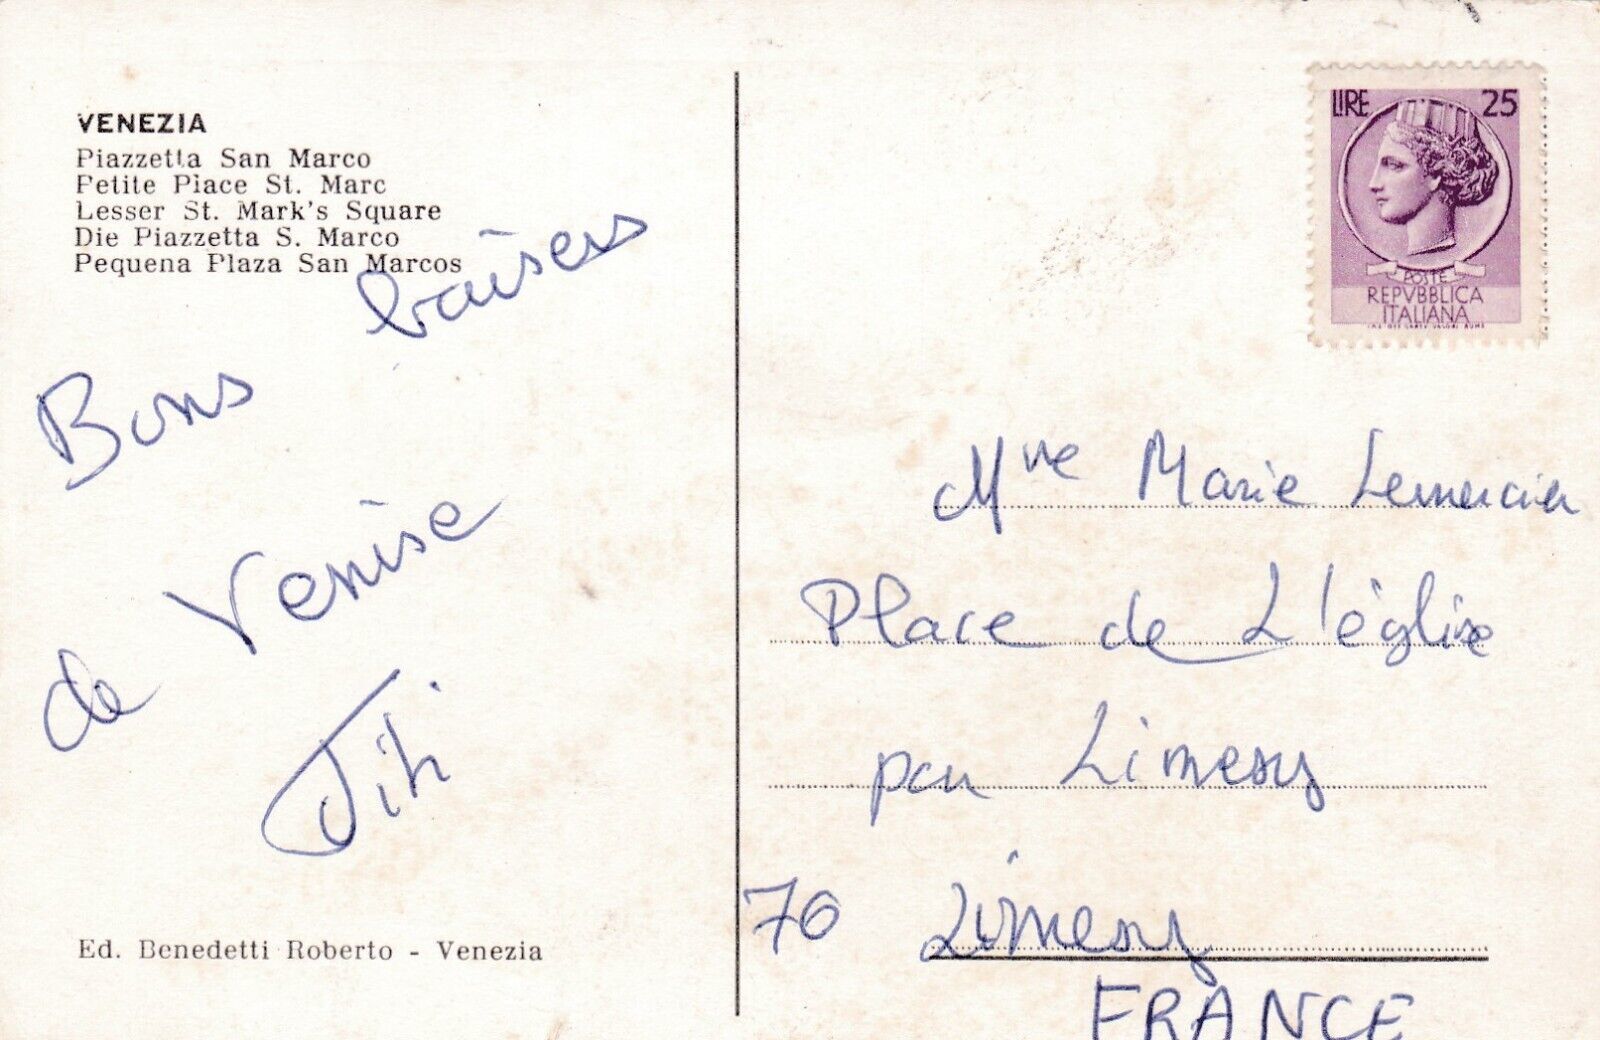 VENEZIA
Piazzetta San Marco
Petite Place St. Marc
Lesser St. Mark's Square
Die Piazzetta S. Marco
Pequena Plaza San Marcos
Bons baisers
de Venise
Ed. Benedetti Roberto - Venezia
LIRE 25
POSTE
REPVBBLICA
ITALIANA
Mme Marie Lemercier
Place de L'église
par Limesy
76 Limesy
FRANCE